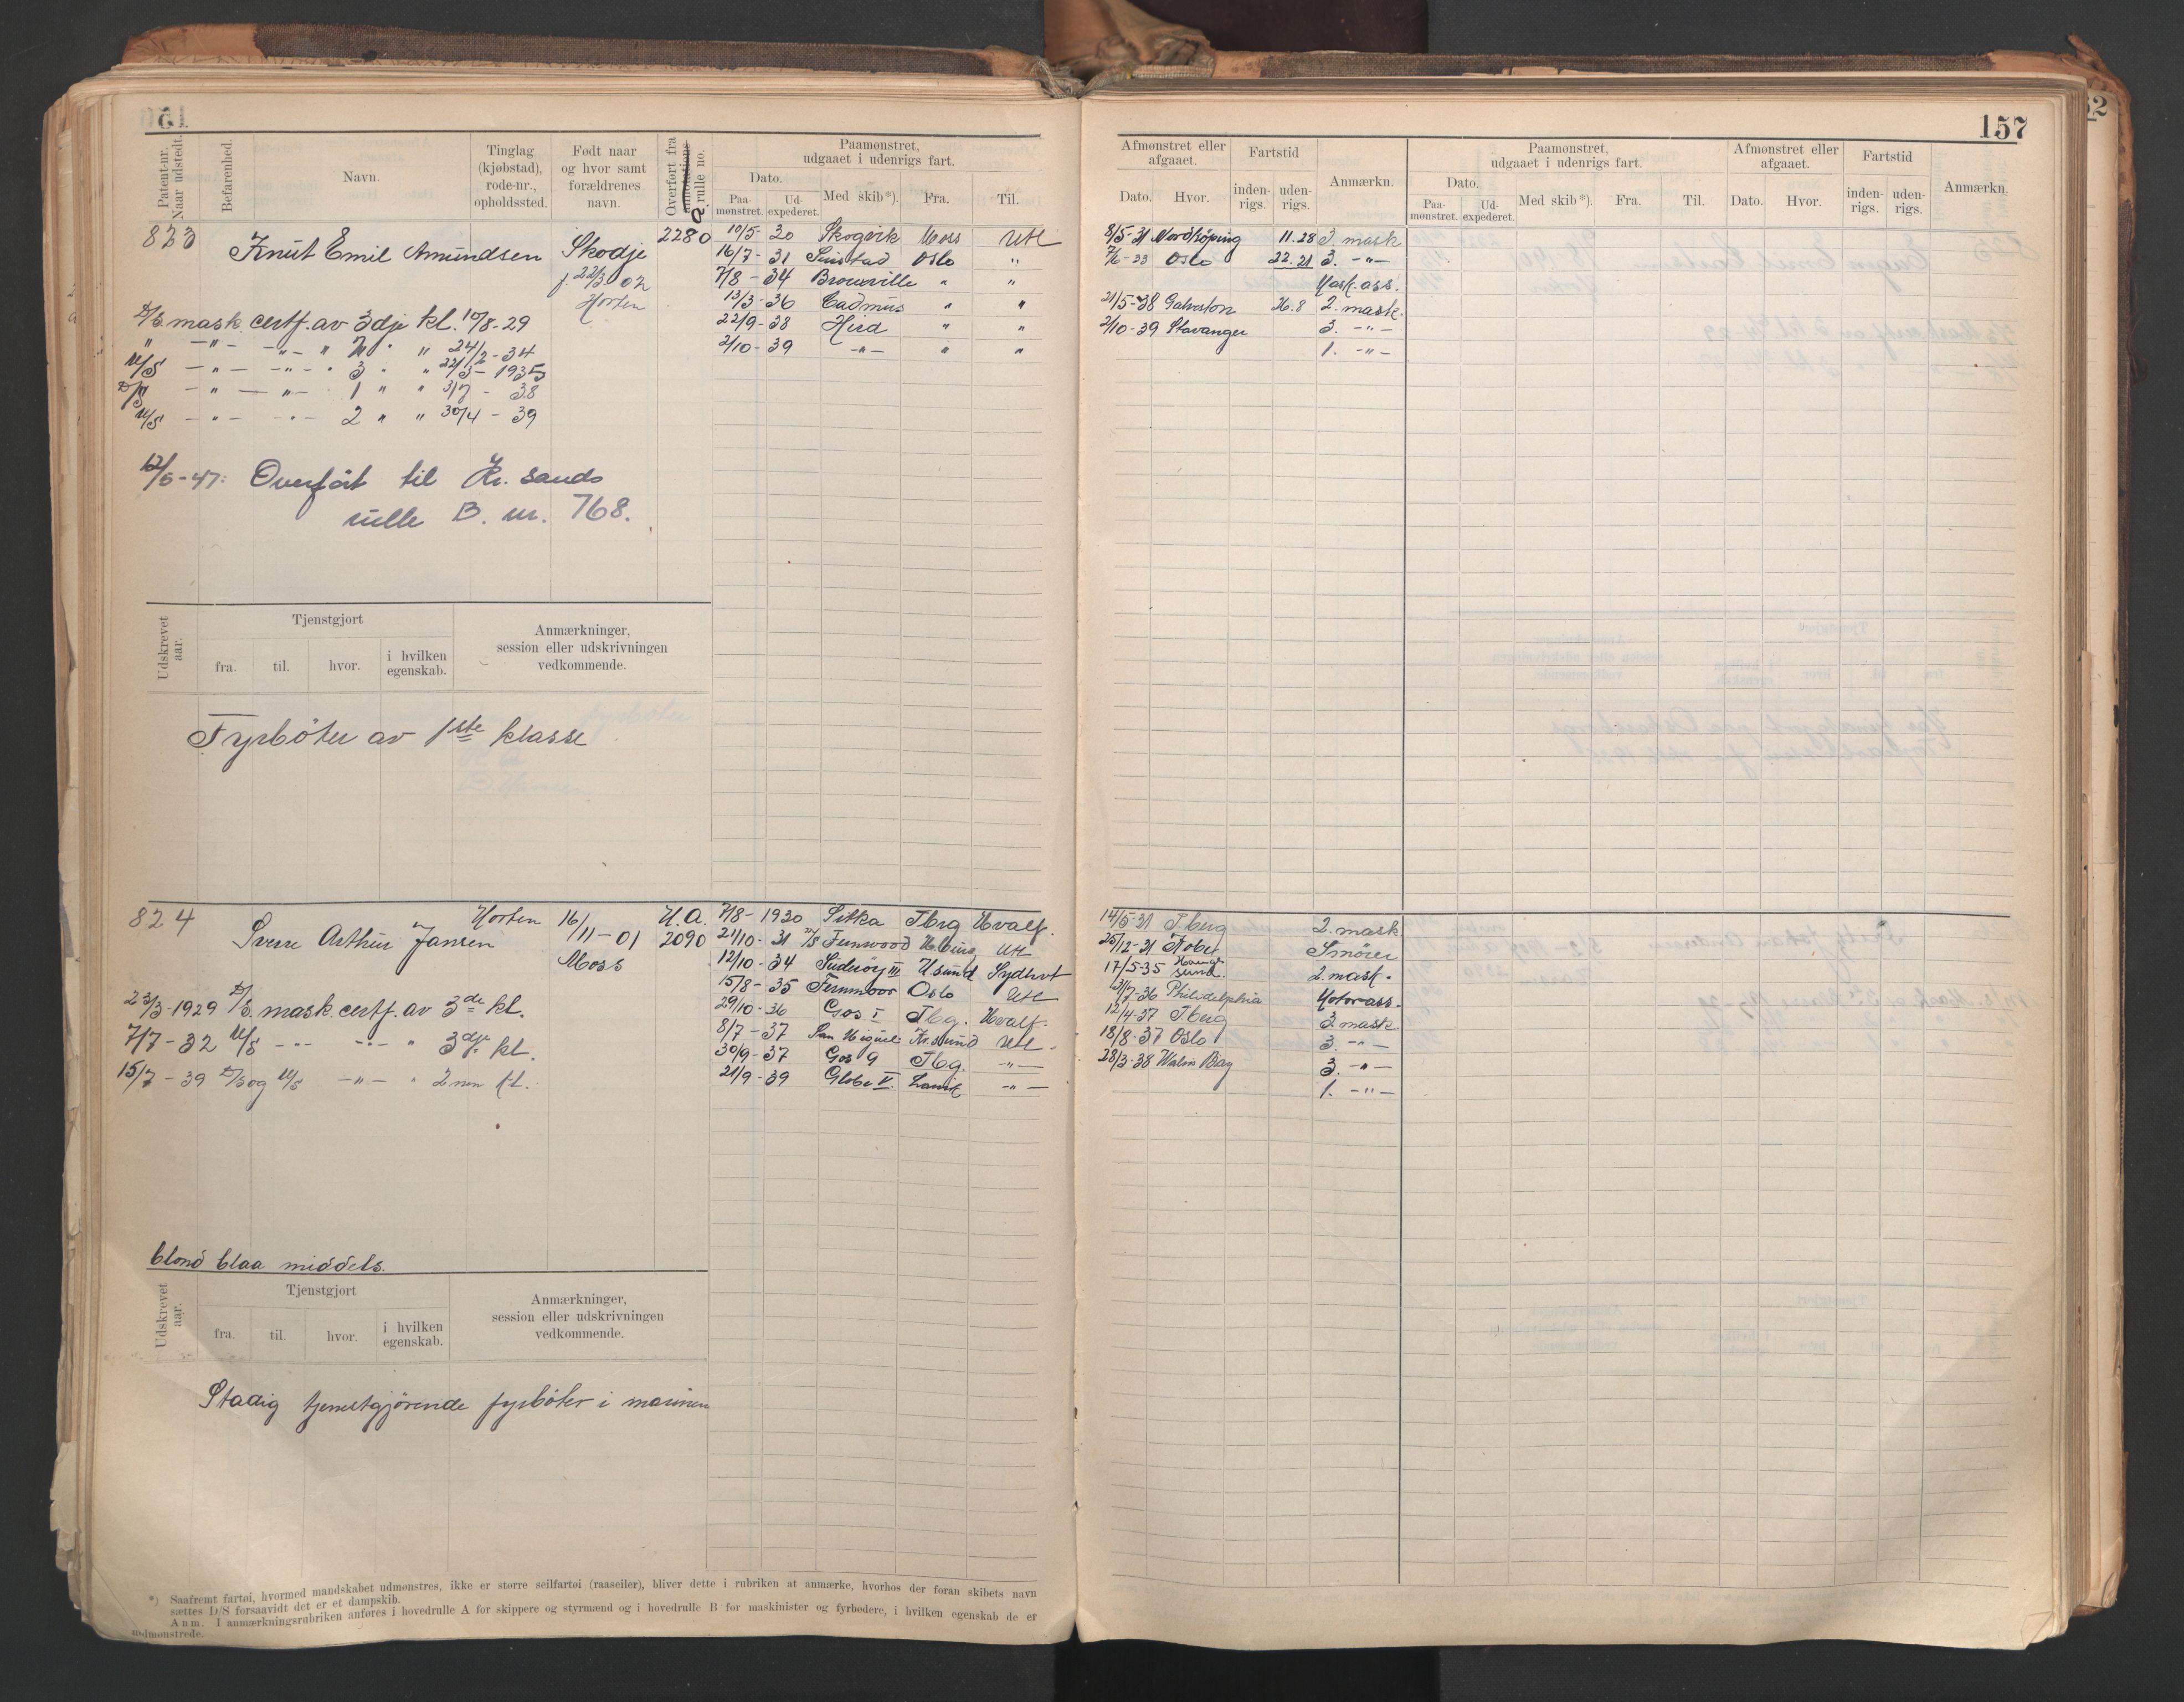 157
Patent-nr. Naar udstedt.
Befarenhed.
Navn.
Tinglag (kjøbstad), rode-nr., opholdssted.
Født naar og hvor samt forældrenes navn.
Overført fra annotations rulle no.
Paamønstret, udgaaet i udenrigs fart.
Dato.
Paa-mønstret.
Ud-expederet.
Med skib*).
Fra.
Til.
Afmønstret eller afgaaet.
Dato.
Hvor.
Fartstid
inden-rigs.
uden-rigs.
Anmærkn.
Paamønstret, udgaaet i udenrigs fart.
Dato.
Paa-mønstret.
Ud-expederet.
Med skib*).
Fra.
Til.
Afmønstret eller afgaaet.
Dato.
Hvor.
Fartstid
inden-rigs.
uden-rigs.
Anmærkn.
823 Knut Emil Amundsen Skodje 2280
f. 22/3 02
Horten
D/S mask. certf. av 3dje kl. 10/8-29
" -"- -"- " 2 " " 24/2-34
M/S -"- -"- " 3 " " 22/3-1935
D/S -"- -"- 1 " " 3/7 - 38
M/S -"- -"- 2 " " 30/4 - 39
12/6-47: Overført til Kr. sands
rulle B. nr. 768.
10/5-30 Skogvik Moss Utl
16/7-31 Oslo "
7/8-34 Brouville " "
13/3-36 Cadmus " "
22/9-38 Hird " "
2/10-39 -"- " "
8/5-31 Nordköping 11.28 3. mask
7/6-33 Oslo 22.21 3. -"-
Mask. ass.
21/5-38 Galveston 26.8 2. mask.
2/10-39 Stavanger 3. -"-
1. -"-
Udskrevet aar.
Tjenstgjort
fra.
til.
hvor.
i hvilken egenskab.
Anmærkninger, session eller udskrivningen vedkommende.
Fyrböter av 1ste klasse
824 Sverre Arthur Jansen Horten 16/11-01 U.A.
Moss 2090
23/3-1929 D/S. mask. certf. av 3de kl.
7/7-32 M/S -"- -"- " 3dje kl.
15/7-39 D/S og M/S -"- " 2nen kl.
7/8-1930 Sitka Tbrg Hvalf.
21/10-31 M/S Fernwood Utl
12/10-34 Suderöy III H.sund Sydhvt
15/8-35 Fernmoor Oslo Utl
29/10-36 Gos I Tbg. Hvalf.
8/7-37 San Miguel Kr.sund Utl
30/9-37 Gos 9 Tbg. -"-
21/9-39 Globe V. -"-
14/5-31 T.berg 2. mask
25/12-31 Kobe Smörer
17/5-35 Haugesund. 2. mask.
3/7-36 Philidelphia Motorass.
12/4-37 T.berg 3. mask.
18/8-37 Oslo 3. -"-
28/3-38 Walvis Bay 3. -"-
1. -"-
blond blaa middels.
Udskrevet aar.
Tjenstgjort
fra.
til.
hvor.
i hvilken egenskab.
Anmærkninger, session eller udskrivningen vedkommende.
Stadig tjenestgjörende fyrböter i marinen
*) Saafremt fartøi, hvormed mandskabet udmønstres, ikke er større seilfartøi (raaseiler), bliver dette i rubriken at anmærke, hvorhos der foran skibets navn
sættes D/S forsaavidt det er et dampskib.
Anm. I anmærkningsrubriken anføres i hovedrulle A for skippere og styrmænd og i hovedrulle B for maskinister og fyrbødere, i hvilken egenskab de er
udmønstrede.